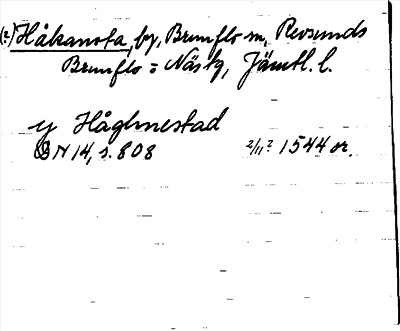 (?) Håkansta, by, Brunflo sn, Revsunds
Brunflo o Näs tg, Jämtl. l.
y Håghnestad
DN 14, s. 808 2/11? 1544 or.